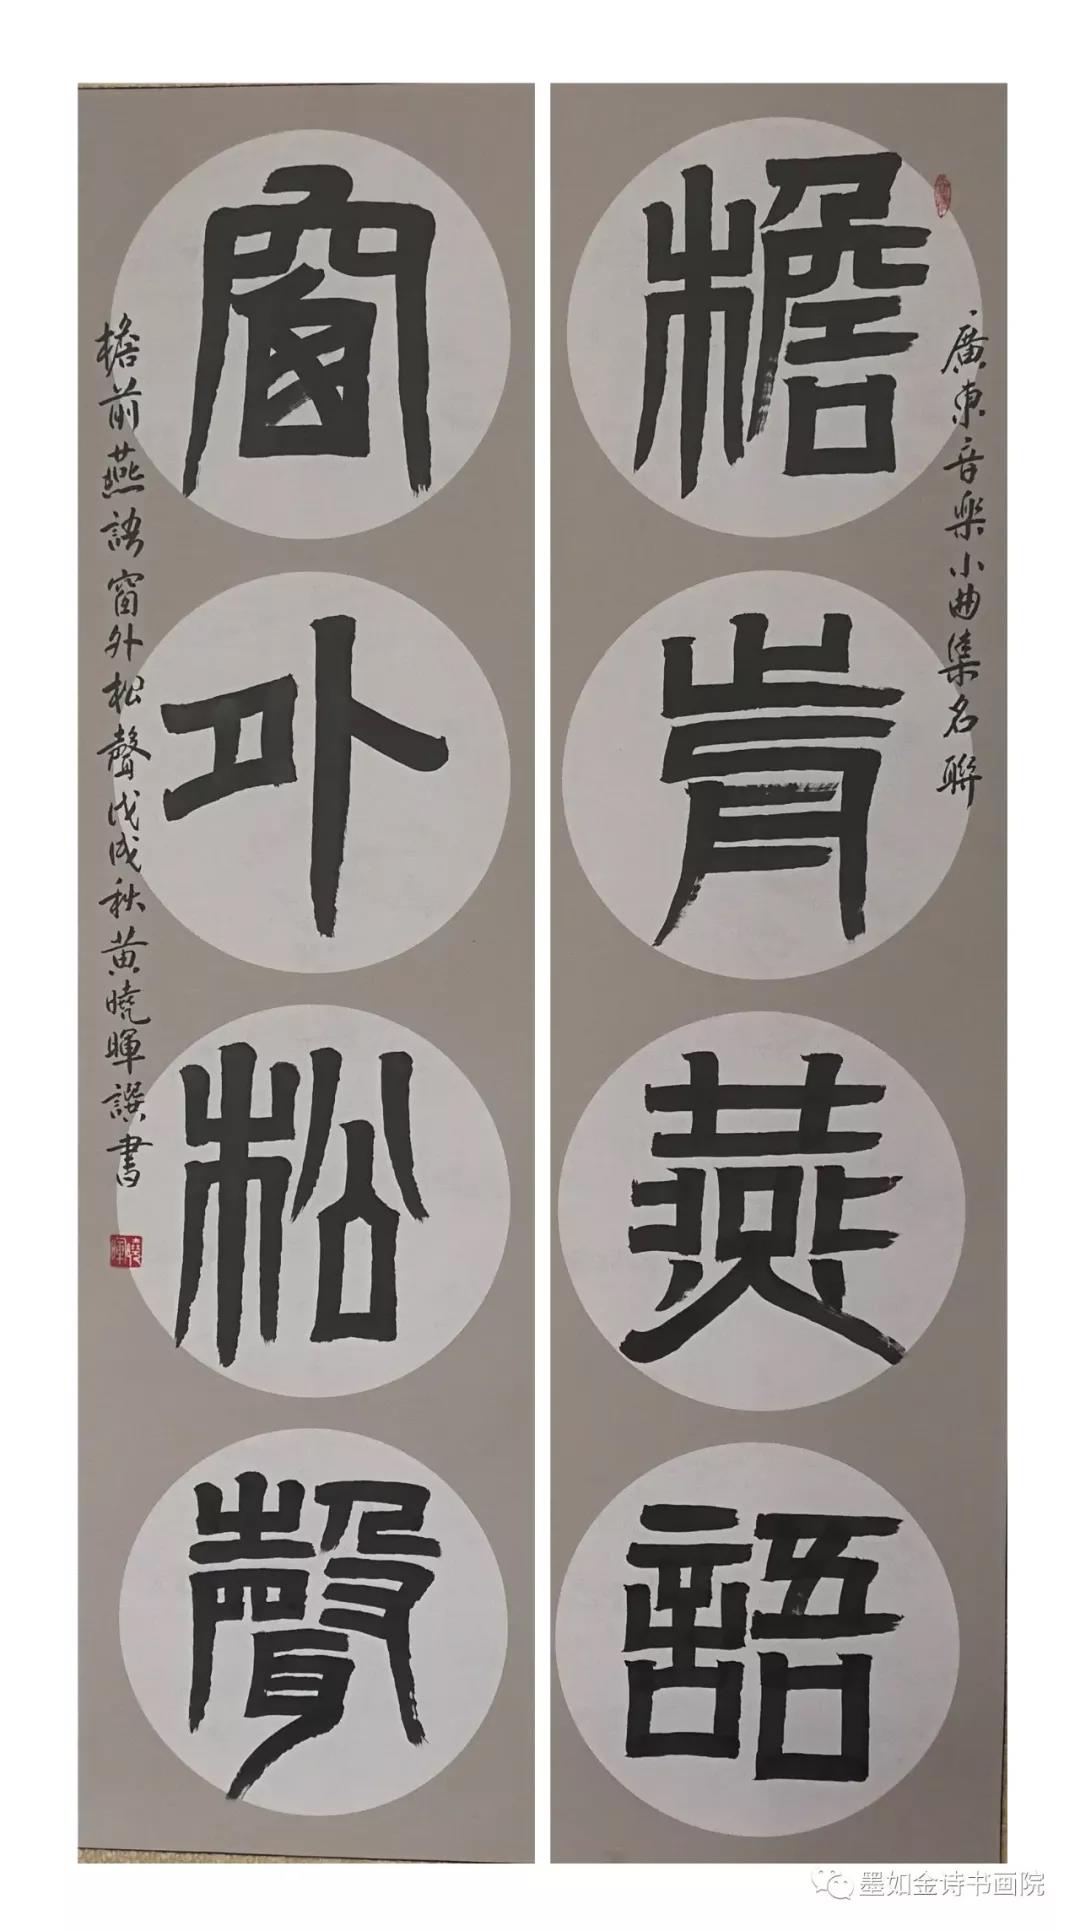 廣東音樂小曲集名聯
檐前燕語
窗外松聲
檐前燕語窗外松聲戊戌秋黃曉暉譔書
曉暉
墨如金诗书画院